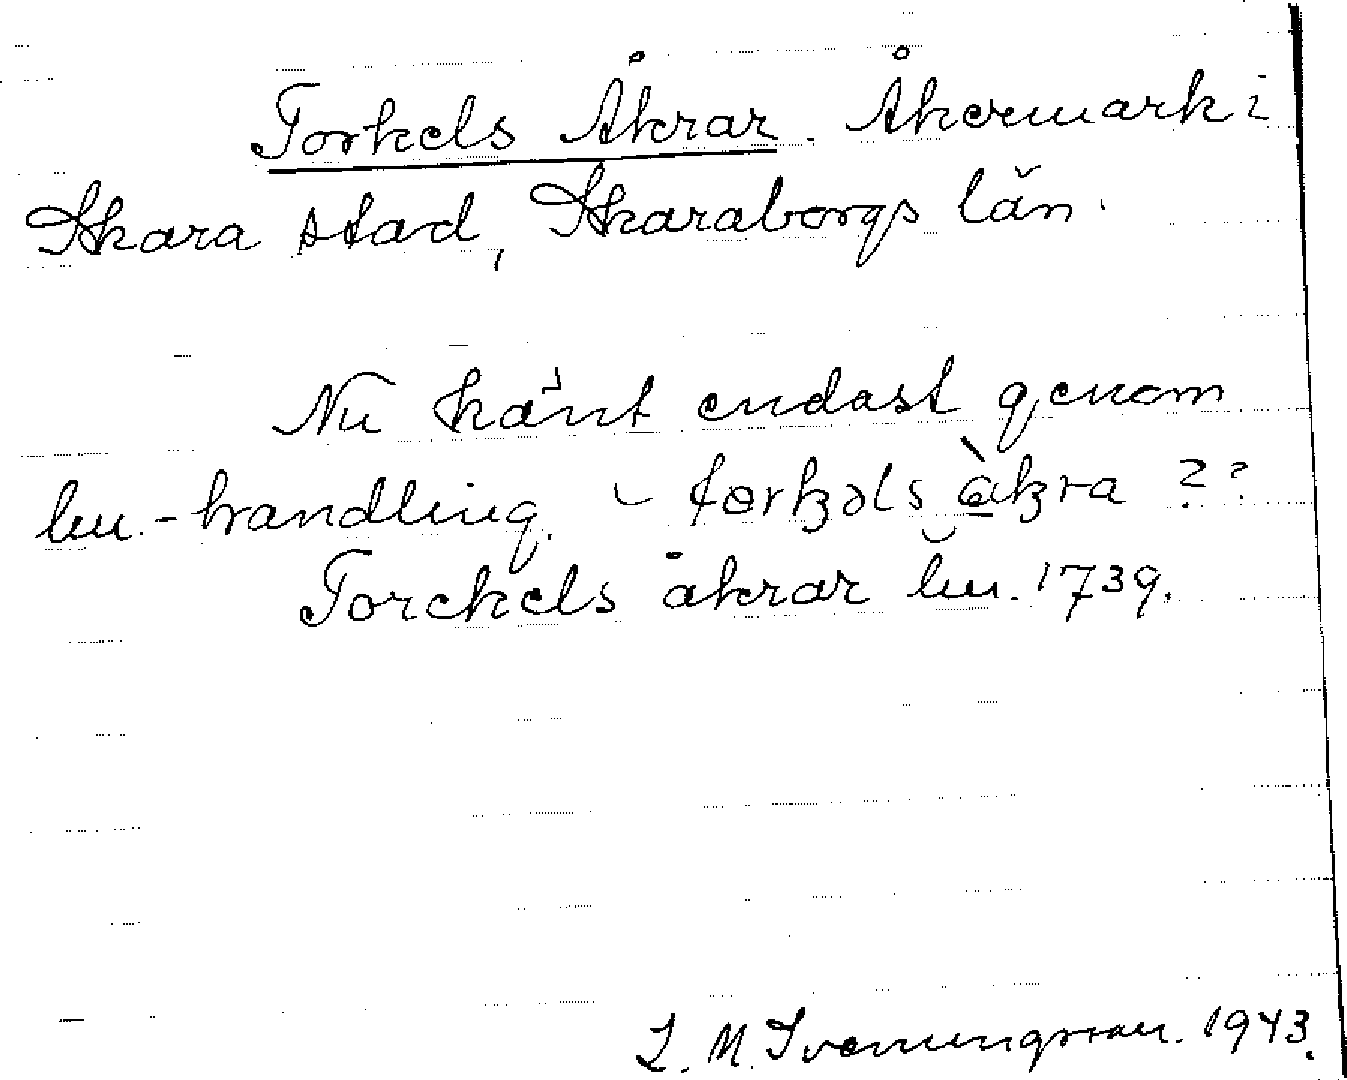 Torkels Åkrar. Åkermark i
Skara stad, Skaraborgs län.
Nu känt endast genom
lm.-handling. tərkəls åkra ??
Torckels åkrar lm. 1739.
L. M. Svenungsson. 1943.